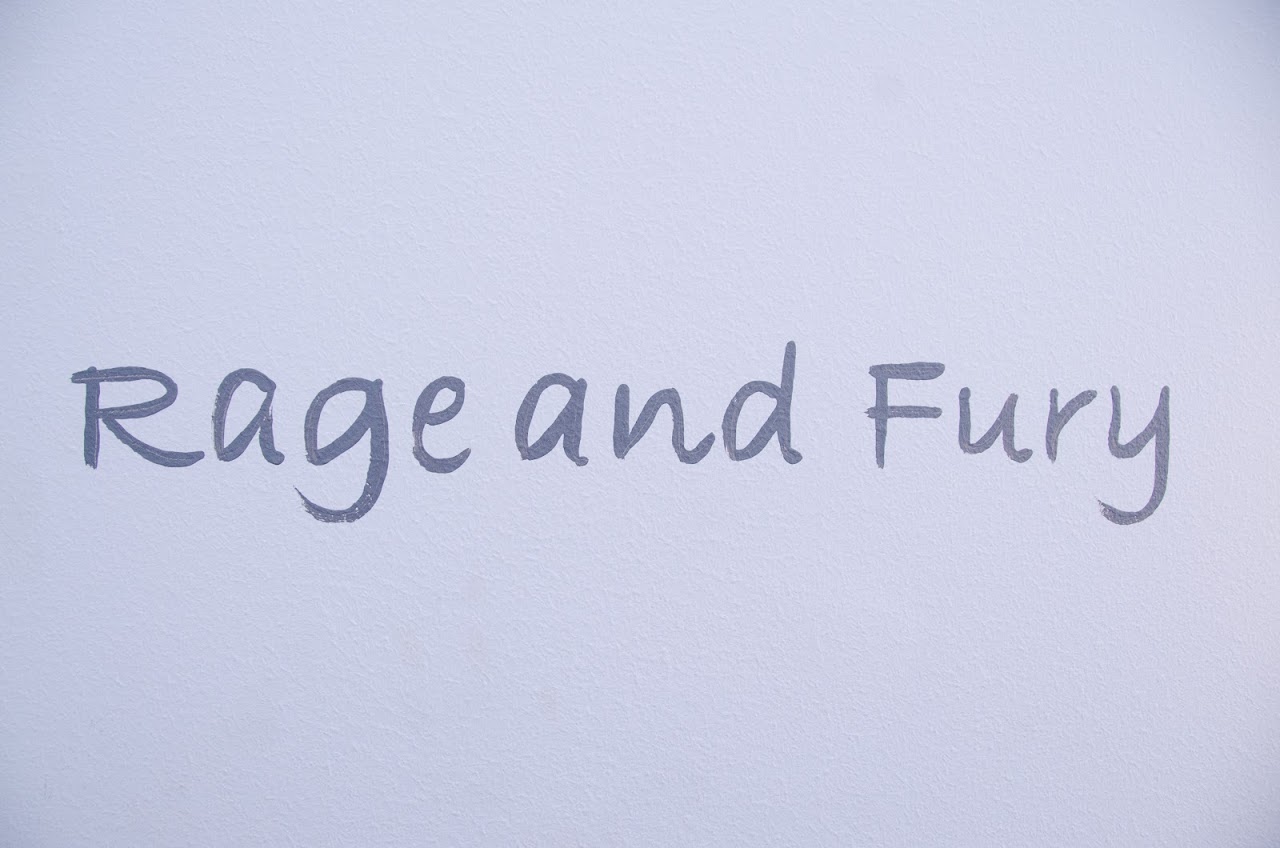 Rage and Fury